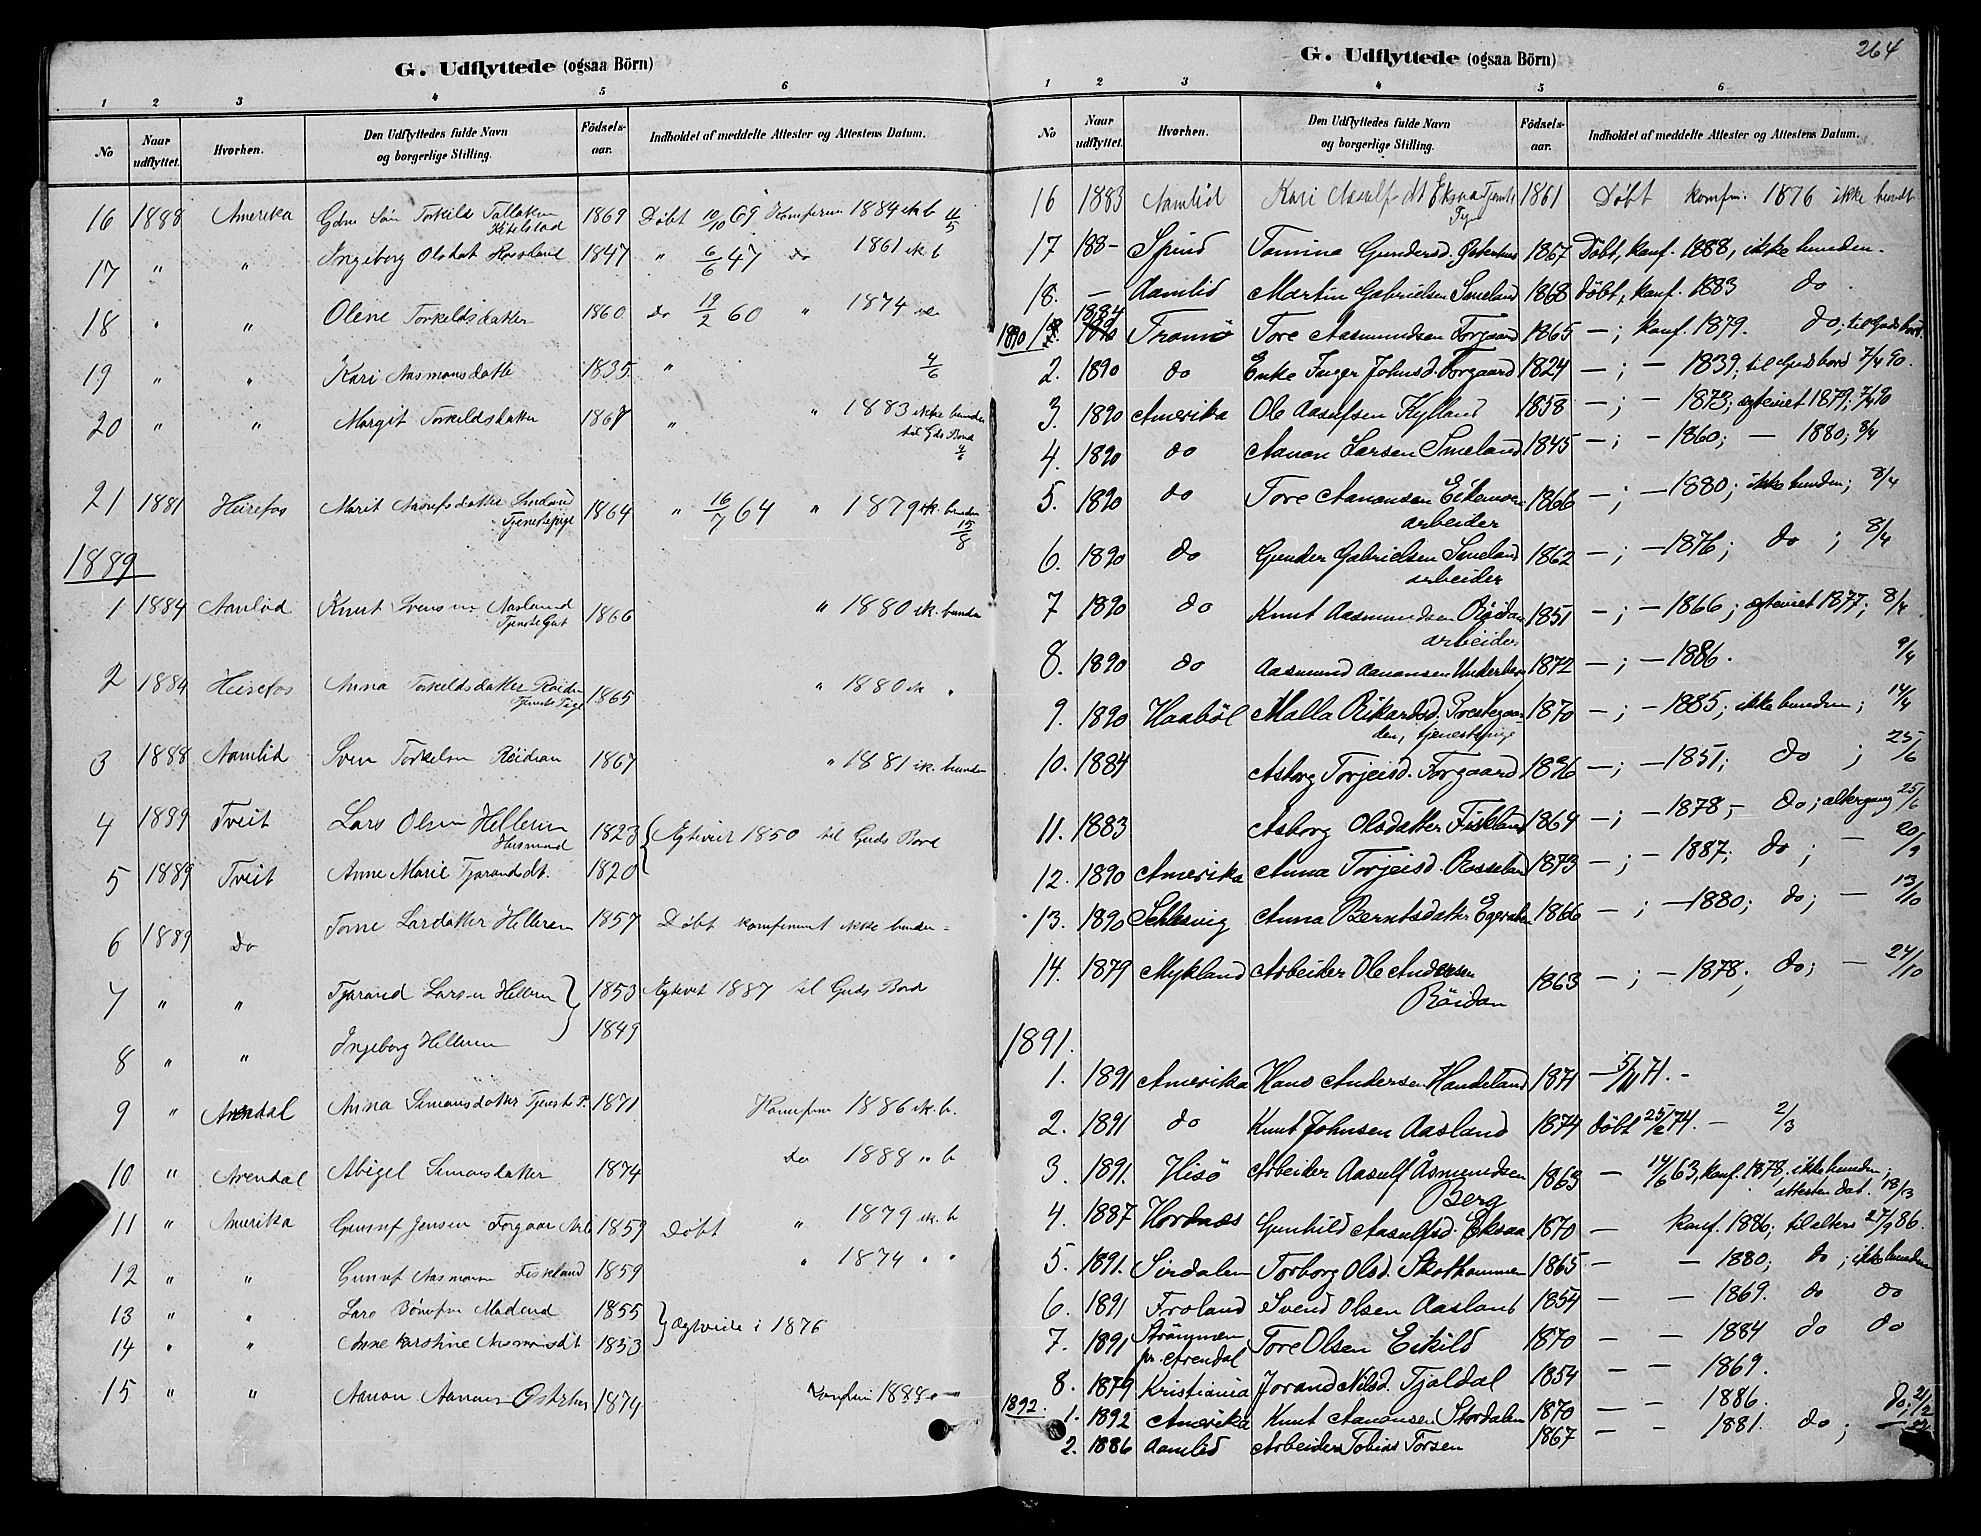 G. Udflyttede (ogsaa Börn)
1 2 3 4 5 6
No Naar udflyttet. Hvorhen. Den Udflyttedes fulde Navn og borgerlige Stilling. Fødsels-aar. Indholdet af meddelte Attester og Attestens Datum.
16 1888 Amerika Torkild Tallaksen 1869 Döbt 10/10 69 1884 ik b
17 " " Ingeborg Olsdat 1847 " 6/6 47 do 1861 ik b
18 " " Olene Torkeldsdatter 1860 do 19/2 60 " 1874
19 " " Kari Aasmonsdatte 1835 " 4/6
20 " " Margit Torkildsdatter 1867 " " 1883 ikke bunden
til Gds Bord
4/6
21 1881 Hirefos Marit 1864 " 16/7 64 " 1879 ik. bunden
Tjenestepige 15/8
1889
1 1884 Aamlid Knut Svensen Aasland 1866 " 1880 ik. bunden
Tjeneste Gut
2 1884 Hirefos Anna Torkeldsdatter 1865 " 1880 ik "
3 1888 Aamlid Sven Torkelsen Röidan 1867 " 1881 ik. bunden
4 1889 Tveit Lars Olsen Helleren 1823 Egteviet 1850 til Guds Bord
Husmand
5 1889 Tveit Anne Marie Tjarandsdt. 1820
6 1889 Do Tone Larsdatter Helleren 1857 Döbt konfirmert ikke bunden
7 " " Tjarand Larsen Helleren 1853 Egteviet 1887 til Guds Bord
8 " " Ingeborg Helleren 1849
9 " Arendal Anna Simonsdatter Tjeneste P. 1871 Konfirm 1886 ik. b.
10 " Arendal Abigel Simonsdatter 1874 Do 1888 " b
11 " Amerika Gunuf Jensen 1859 Döbt " 1879 ik. b
12 " " Gunuf Aasmonsen Fiskland 1859 " 1874 " "
13 " " Lars 1855 Ægtviede i 1876
14 " " Anne Karstine 1853
15 " " Aanon Aanonsen 1874 Konfirm 1888 " "
264
G. Udflyttede (ogsaa Börn)
1 2 3 4 5 6
No Naar udflyttet. Hvorhen. Den Udflyttedes fulde Navn og borgerlige Stilling. Födsels-aar. Indholdet af meddelte Attester og Attestens Datum.
16 1883 Aamlid Kari Aasulfsdt Eksaa 1861 Döbt konfm. 1876 ikke bundt
17 188- Spind Tomina Gundersd. 1867 Döbt, konf. 1888, ikke bunden.
18. — Aamlid Martin Gabrielsen Smeland 1868 döbt, konf. 1883 do.
1890 1. 1884 Tromö Tore Aasmundsen Forgaard 1865 —; konf. 1879. do; til Guds bord.
2. 1890 do Enke Inger Johnsd. Forgaard 1824 —; — 1839; til Guds bord 7/4 90.
3. 1890 Amerika Ole Aasulfsen Kylland 1858 —; — 1873; egteviet 1879; 7/4 90
4. 1890 do Aanon Larsen Smeland 1845 —; — 1860; — 1880; 8/4
5. 1890 do Tore Aanonsen Eikemoen 1866 —; — 1880; ikke bunden; 8/4
arbeider
6. 1890 do Gunder Gabrielsen Smeland 1862 —; — 1876; do; 8/4
arbeider
7 1890 do Knut Aasmundsen Röidan 1851 —; — 1866; egteviet 1877; 8/4
arbeider
8. 1890 do Aasmund Aanonsen 1872 —; — 1886. 9/4
9. 1890 Haaböl Malla Rikardsd. Prestegaar- 1870 —; — 1885; ikke bunden; 14/4
den, tjenestepige
10. 1884 Asborg Torjeisd. Forgaard 1836 —; — 1851; do; 25/6
11. 1883 Asborg Olsdatter Fiskland 1864 —; — 1878; — do; altergang 25/6
12. 1890 Amerika Anna Torjeisd. Rosseland 1873 —; — 1887; do; — 20/9
13. 1890 Schlesvig Anna Berntsdatter 1866 —; — 1880; do; — 13/10
14. 1879 Mykland Arbeider Ole Andersen 1863 —; — 1878; do; — 24/10
Röidan
1891.
1. 1891 Amerika Hans Andersen Handeland 1871 — 5/11 71. —
2. 1891 do Knut Johnsen Aasland 1874 döbt 25/2 74. — 2/3
3. 1891. Hisö Arbeider Aasulf Åsmundsen 1863 — 14/6 63, konf. 1878, ikke bunden;
Berg attesten dat. 18/3
4. 1887 Hordnæs Gunhild Aasulfsd. Eksaa 1870 — konf. 1886; til alters 27/9 86.
5. 1891. Sirdalen Torborg Olsd. Skothommen 1865 — — 1880; do; ikke bunden
6. 1891 Froland Svend Olsen Aasland 1854 — — 1869. do do
7. 1891 Strömmen pr. Arendal Tore Olsen Eikild 1870 — — 1884 do do
8. 1879 Kristiania Jorand Nilsd. Tjaldal 1854 — — 1869.
1892. 1. 1892 Amerika Knut Aanonsen Stordalen 1870 — — 1886. do;
2. 1886 Aamlid Arbeider Tobias Torsen 1867 — — 1881. do; —